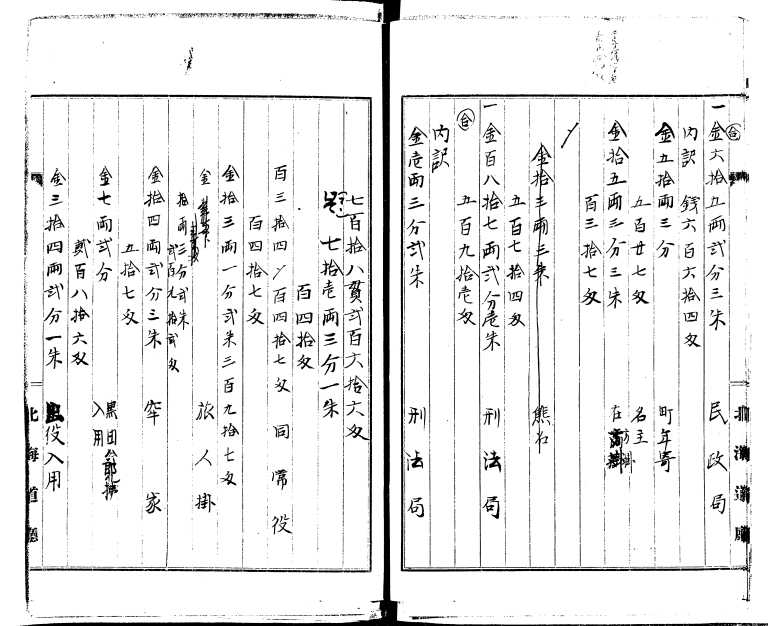 一金六拾五両弐分三朱　民政局
㊎
内訳　銭六百六拾四匁
金五拾両三分　町年寄
五百廿七匁　名主
金拾五両三分三朱　在方掛
百三拾七匁
金拾三両三朱　熊石
五百七拾四匁
一金百八拾七両弐分壱朱　刑法局
五百九拾壱匁
内訳
金壱両三分弐朱　刑法局
北海道廳
七百拾八貫弐百六拾六匁
七拾壱両三分一朱
百四拾匁
百三拾四ノ百四拾七匁　同常役
百四拾七匁
金拾三両一分弐朱三百九拾七匁
旅人掛
拾両三分弐朱
弐百九拾弐匁
金拾四両弐分三朱　牢家
五拾七匁
金七両弐分　黒田
入用
弐百八拾六匁
金三拾四両弐分一朱　役入用
北海道廳